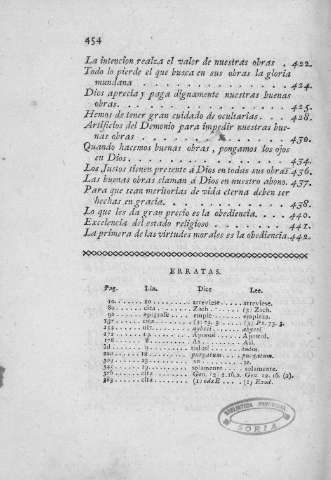 454
La intencion realza el valor de nuestras obras . 422.
Todo lo pierde el que busca en sus obras la gloria
mundana . . . . . . . . . . . . . . 424.
Dios aprecia y paga dignamente nuestras buenas
obras. . . . . . . . . . . . . . . . 425.
Hemos de tener gran cuidado de ocultarlas . . . 428.
Artificios del Demonio para impedir nuestras bue-
nas obras . . . . . . . . . . . . . . 430.
Quando hacemos buenas obras, pongamos los ojos
en Dios . . . . . . . . . . . . . . . 434.
Los Justos tienen presente á Dios en todas sus obras. 436.
Las buenas obras claman á Dios en nuestro abono. 437.
Para que sean meritorias de vida eterna deben ser
hechas en gracia. . . . . . . . . . . . 438.
Lo que les da gran precio es la obediencia. . . . 440.
Excelencia del estado religioso . . . . . . . 441.
La primera de las virtudes morales es la obediencia. 442.
ERRATAS.
Pag. Lin. Dice Lee.
atreviese.
cita Zach. (3) Zach.
empieza.
cita
Ajustól.
Así.
todas.
purgatum. purgatum.
solamente. solamente.
cita Gen. Gen. 22. 16. (2).
383 cita (1) Exod.
BIBLIOTECA PROVINCIAL
SORIA